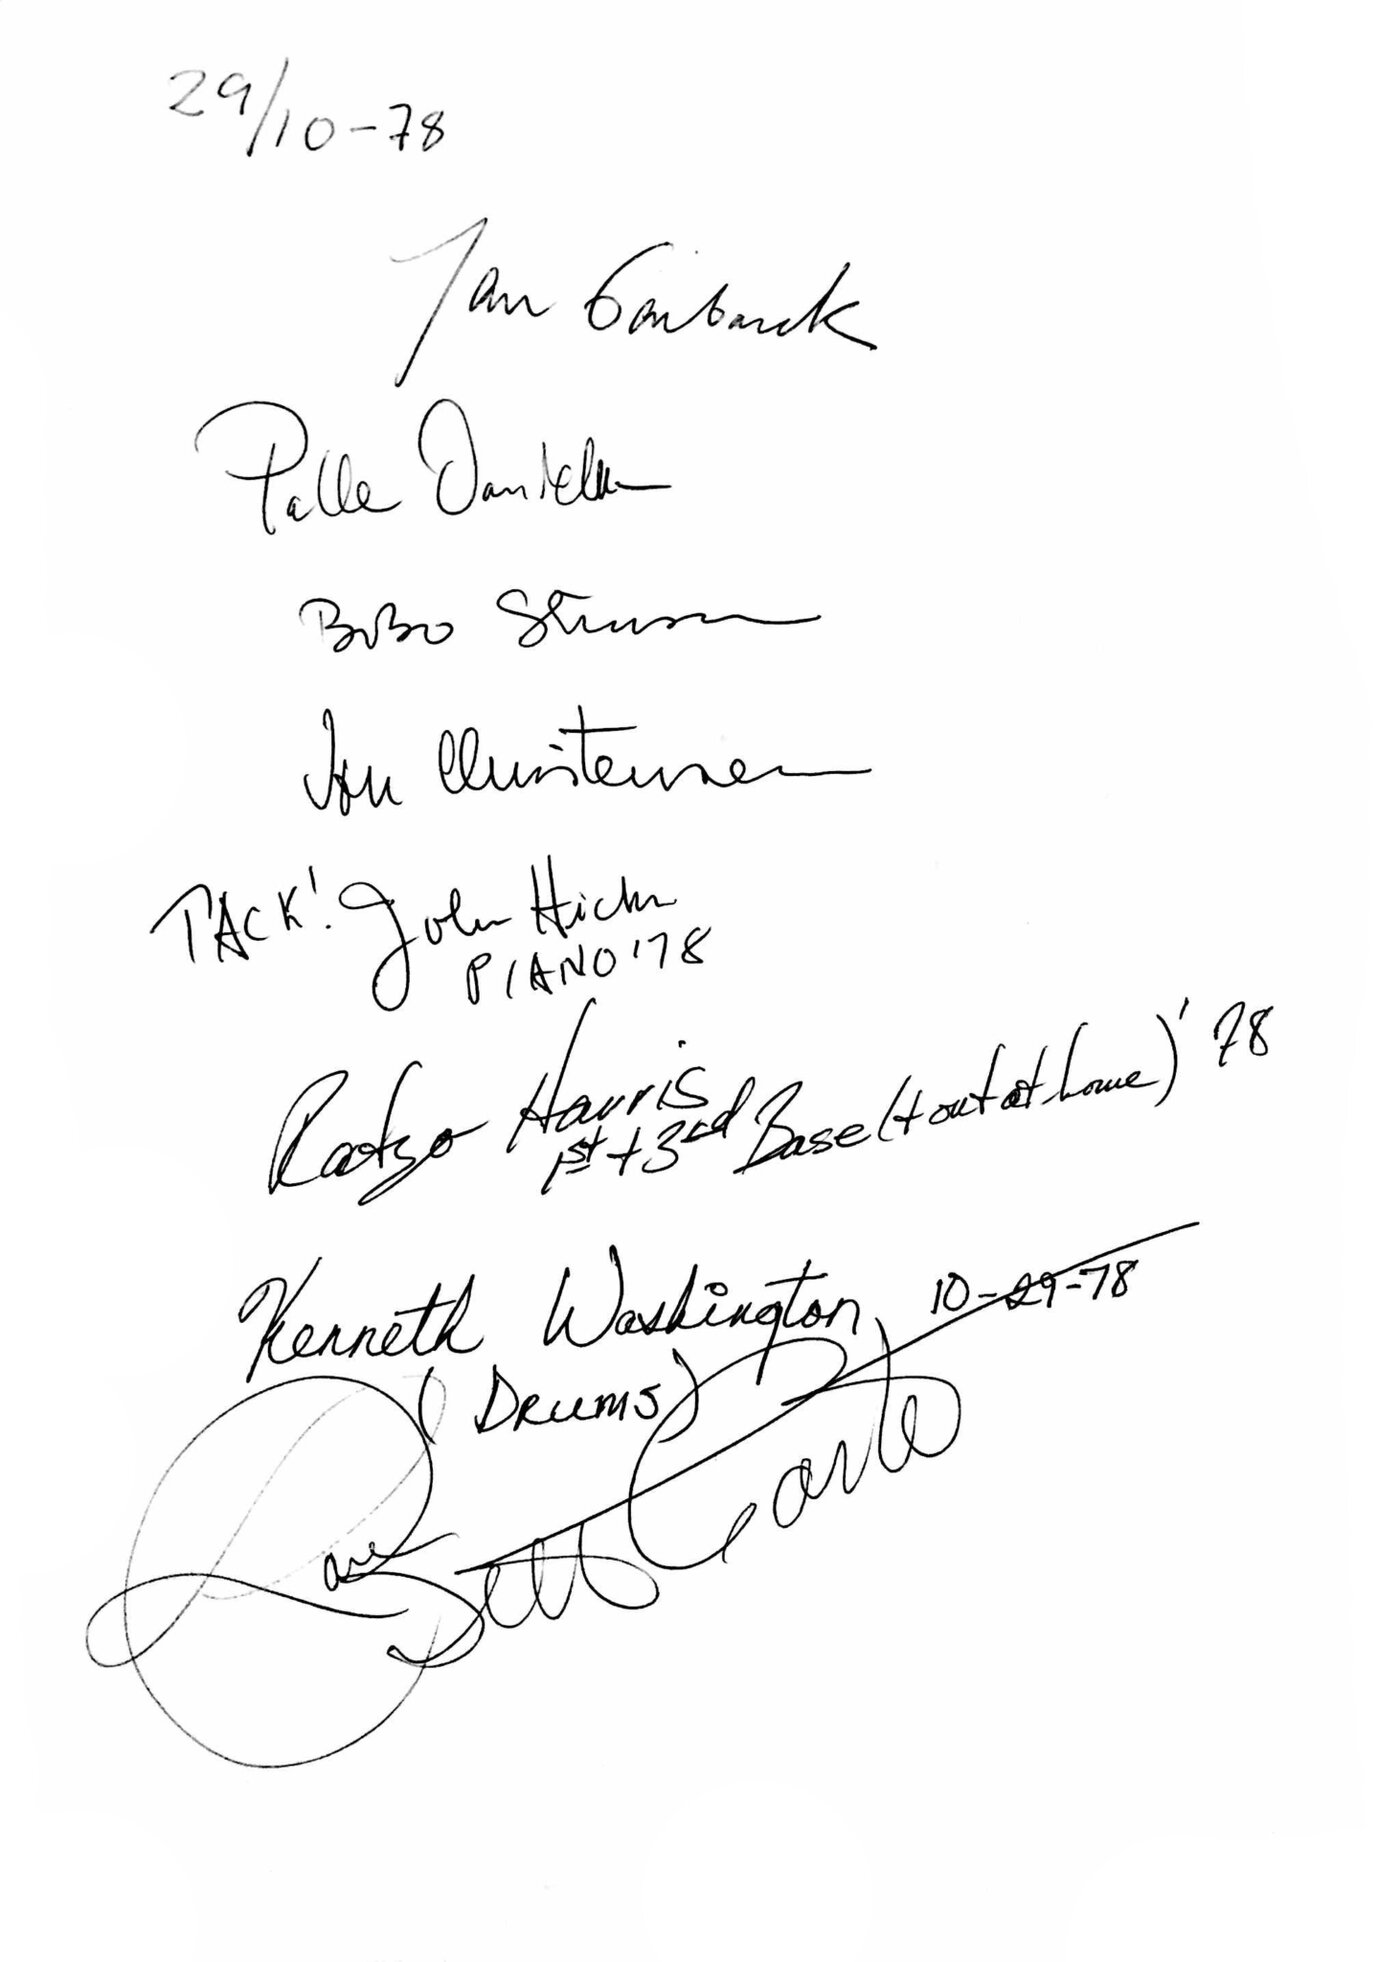 29/10-78
Jan Garbarek
Palle Danielsson
BoBo Stenson
Jon Christensen
TACK! John Hicks
PIANO '78
Ratzo Harris
1st + 3rd Base (+ out at home) '78
Kenneth Washington 10-29-78
(Drums)
Love Betty Carter